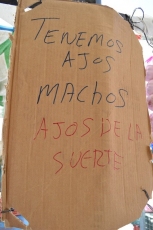 TENEMOS
AJOS
MACHOS
AJOS DE LA
SUERTE